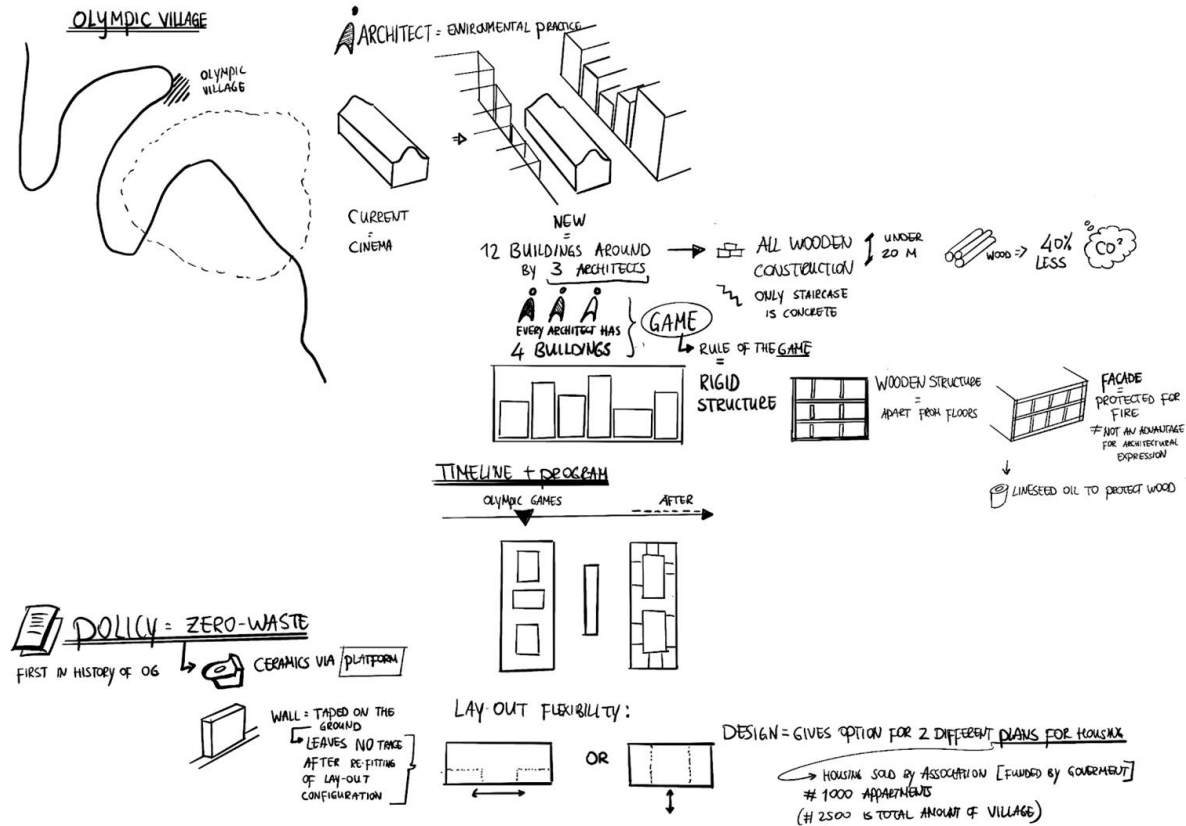 OLYMPIC VILLAGE
OLYMPIC
VILLAGE
ARCHITECT = ENVIRONMENTAL PRACTICE
CURRENT
=
CINEMA
NEW
=
12 BUILDINGS AROUND
BY 3 ARCHITECTS
EVERY ARCHITECT HAS
4 BUILDINGS
GAME
RULE OF THE GAME
=
RIGID
STRUCTURE
ALL WOODEN
CONSTRUCTION
UNDER
20 M
ONLY STAIRCASE
IS CONCRETE
WOOD
40%
LESS
CO²
WOODEN STRUCTURE
=
APART FROM FLOORS
FACADE
=
PROTECTED FOR
FIRE
≠ NOT AN ADVANTAGE
FOR ARCHITECTURAL
EXPRESSION
LINESEED OIL TO PROTECT WOOD
TIMELINE + PROGRAM
OLYMPIC GAMES
AFTER
POLICY = ZERO-WASTE
FIRST IN HISTORY OF OG
CERAMICS VIA PLATFORM
WALL = TAPED ON THE
GROUND
LEAVES NO TRACE
AFTER RE-FITTING
OF LAY-OUT
CONFIGURATION
LAY-OUT FLEXIBILITY:
OR
DESIGN = GIVES OPTION FOR 2 DIFFERENT PLANS FOR HOUSING
HOUSING SOLD BY ASSOCIATION [FUNDED BY GOVERMENT]
# 1000 APPARTMENTS
(# 2500 IS TOTAL AMOUNT OF VILLAGE)